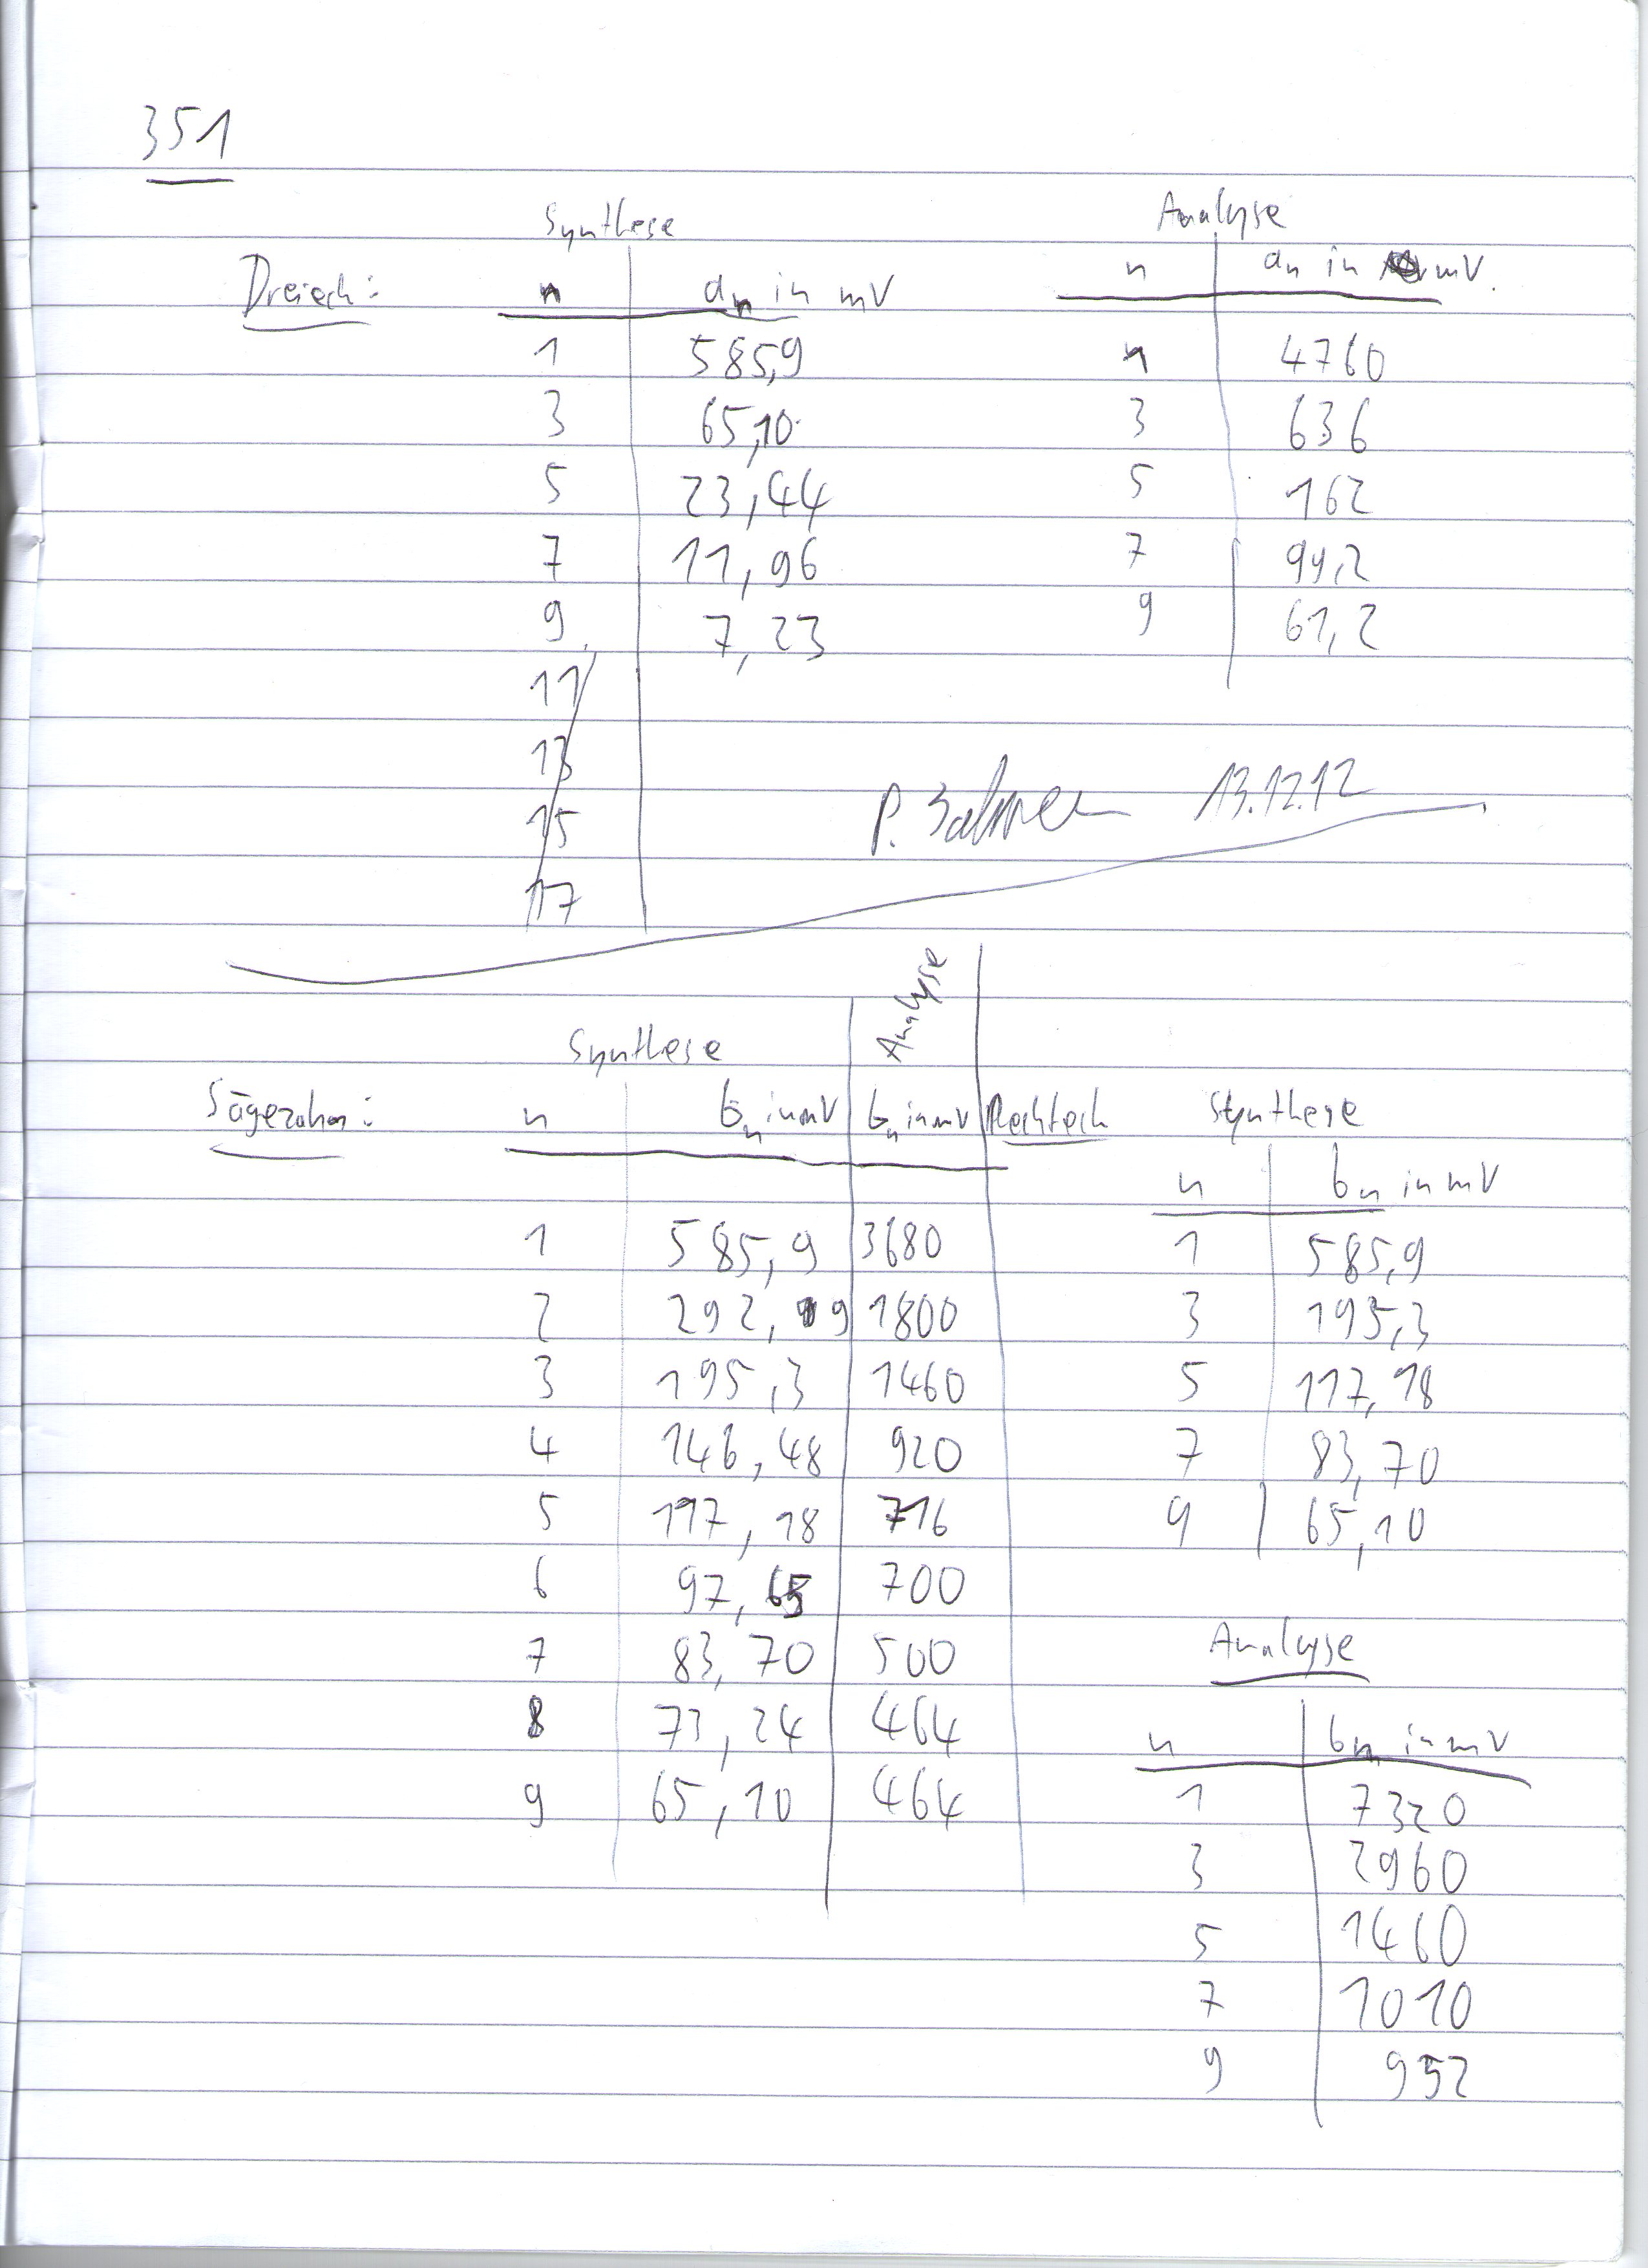 351
Synthese
Dreieck:
n | an in mV
1 | 585,9
3 | 65,10
5 | 23,44
7 | 11,96
9 | 7,23
11
13
15
17
Analyse
n | an in mV.
1 | 4760
3 | 636
5 | 162
7 | 99,2
9 | 61,2
P. 13.12.12
Synthese | Analyse
Sägezahn: n | bn in mV | bn in mV
1 | 585,9 | 3680
2 | 292,99 | 1800
3 | 195,3 | 1460
4 | 146,48 | 920
5 | 117,18 | 716
6 | 97,65 | 700
7 | 83,70 | 500
8 | 73,24 | 464
9 | 65,10 | 464
Rechteck Synthese
n | bn in mV
1 | 585,9
3 | 195,3
5 | 117,18
7 | 83,70
9 | 65,10
Analyse
n | bn in mV
1 | 7320
3 | 2960
5 | 1460
7 | 1010
9 | 952